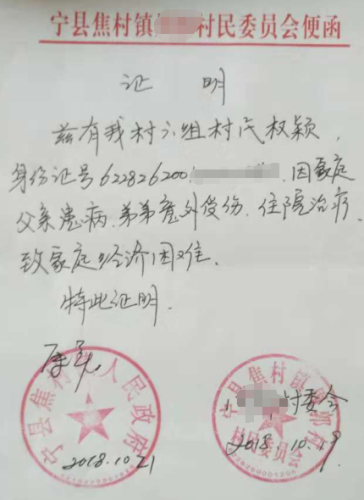 宁县焦村镇 村民委员会便函
证 明
兹有我村六组村民权颖,
身份证号622826200 ,因家庭
父亲患病,弟弟意外受伤,住院治疗,
致家庭经济困难.
特此证明.
宁县焦村 人民政府
2018.10.21
宁县焦村镇
村委会
村民委员会
2018.10.19